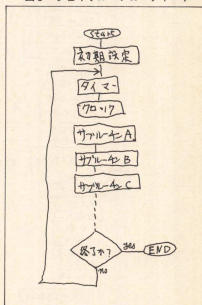 start
初期設定
タイマー
クロック
サブルーチンA
サブルーチンB
サブルーチンC
終了か?
yes
END
no